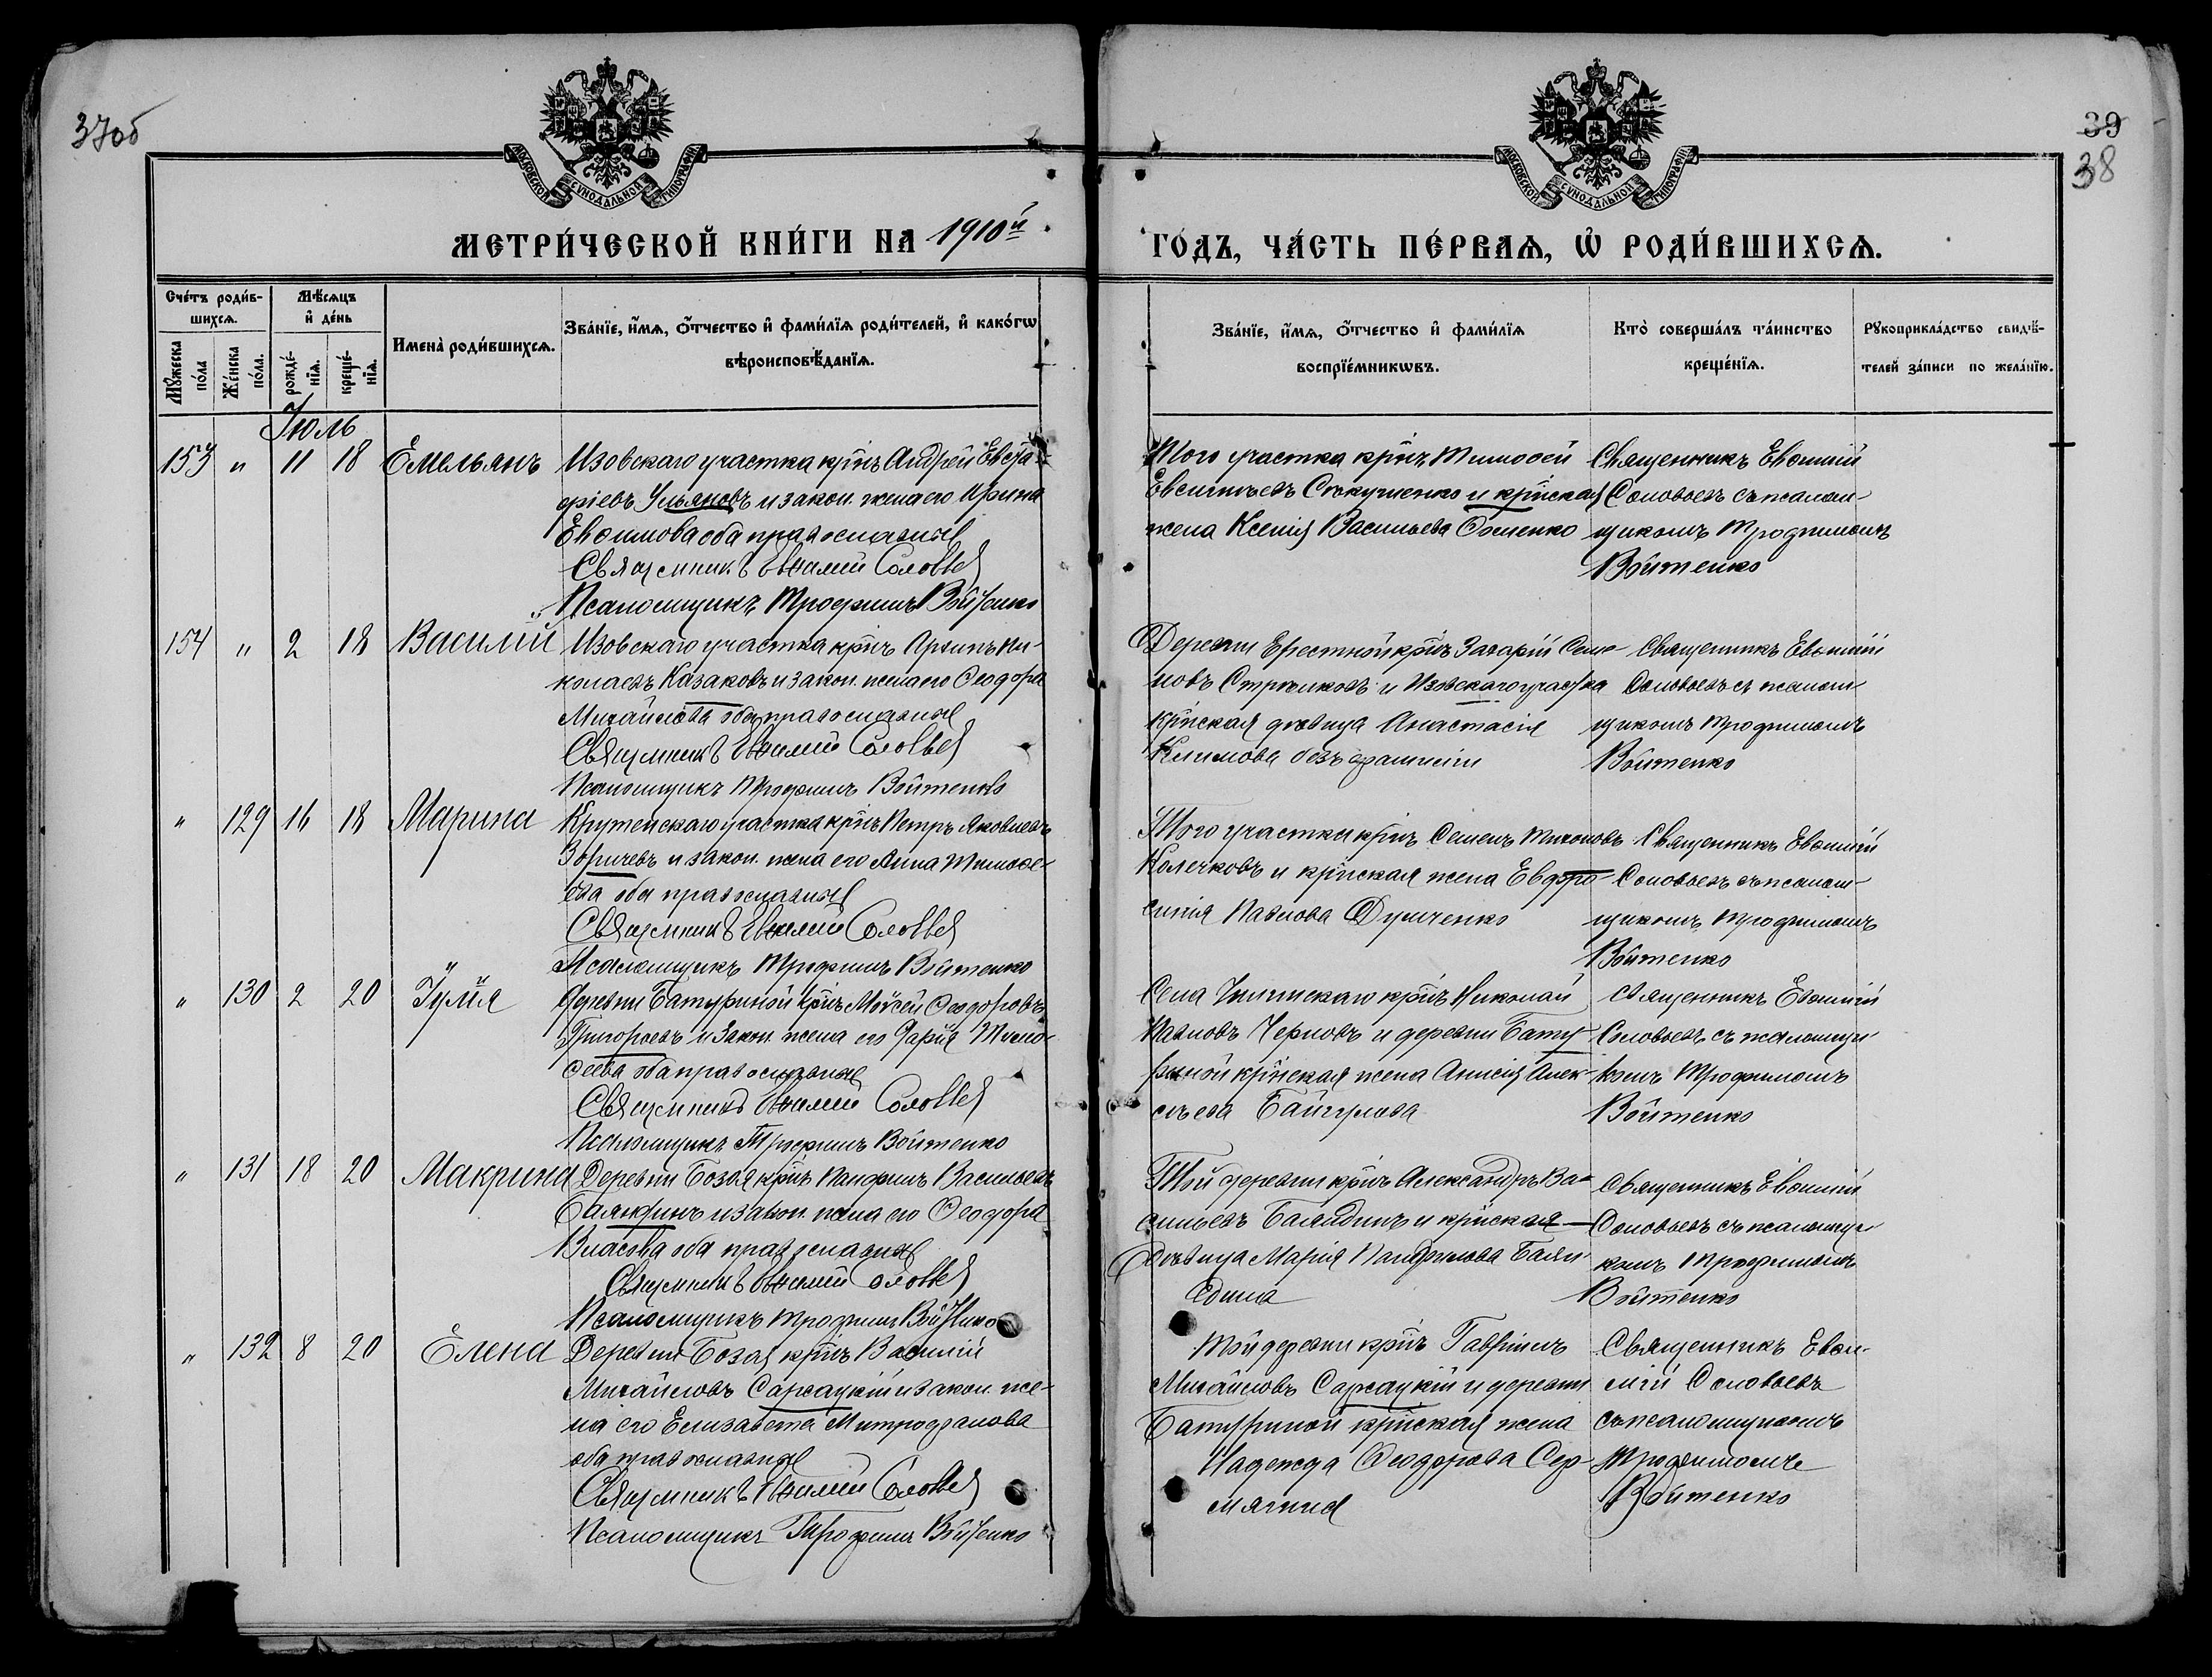 37об
39
38
МОСКОВСКОЙ СѴНОДАЛЬНОЙ ТИПОГРАФІИ
МОСКОВСКОЙ СѴНОДАЛЬНОЙ ТИПОГРАФІИ
МЕТРИ́ЧЕСКОЙ КНИ́ГИ НА 1910й
ГО́ДЪ, ЧА́СТЬ ПЕ́РВАѦ, Ѡ҆ РОДИ́ВШИХСѦ.
Сче́тъ роди́в-
шихсѧ.
Мѣ́сѧцъ
и҆ де́нь
Имена̀ роди́вшихсѧ.
Зва́нїе, и҆́мѧ, ѻ҆́тчество и҆ фами́лїѧ роди́телей, и҆ како́гѡ
вѣроисповѣ́данїѧ.
Мꙋ́жеска
по́ла
Же́нска
по́ла.
рожде́-
нїѧ.
креще́-
нїѧ.
Зва́нїе, и҆́мѧ, ѻ҆́тчество и҆ фами́лїѧ
воспрїе́мникѡвъ.
Кто̀ соверша́лъ та́инство
креще́нїѧ.
Рꙋкоприкла́дство свидѣ́-
телей за́писи по жела́нїю.
Іюль
153 " 11 18 Емельянъ
Изовскаго участка крнъ Андрей Евста-
фіевъ Ульяновъ и закон. жена его Ирина
Евѳимова оба православные
Священникъ Евѳимій Соловьев
Псаломщикъ Трофимъ Войтенко
Того участка крнъ Тимоѳей
Евсигнѣевъ и крнская
жена Ксенія Васильева
Священникъ Евѳимій
Соловьевъ съ псалом-
щикомъ Трофимомъ
Войтенко
154 " 2 18 Василій
Изовскаго участка крнъ Архипъ Ни-
колаевъ Казаковъ и закон. жена его Ѳеодора
Михайлова оба православные
Священникъ Евѳимій Соловьев
Псаломщикъ Трофимъ Войтенко
Деревни Ерестной крнъ Захарій Семе-
новъ Стрѣлковъ и Изовскаго участка
крнская дѣвица Анастасія
Климова безъ фамиліи
Священникъ Евѳимій
Соловьевъ съ псалом-
щикомъ Трофимомъ
Войтенко
" 129 16 18 Марина
участка крнъ Петръ Яковлевъ
Зоричевъ и закон. жена его Анна Тимоѳе-
ева оба православные
Священникъ Евѳимій Соловьев
Псаломщикъ Трофимъ Войтенко
Того участка крнъ Семенъ Тихоновъ
Колечковъ и крнская жена Евфро-
синія Павлова Думченко
Священникъ Евѳимій
Соловьевъ съ псалом-
щикомъ Трофимомъ
Войтенко
" 130 2 20 Іулія
Деревни Батуриной крнъ Мойсей Ѳеодоровъ
Григорьевъ и закон. жена его Дарія Тимо-
ѳеева оба православные
Священникъ Евѳимій Соловьев
Псаломщикъ Трофимъ Войтенко
Села крнъ Николай
Павловъ Черновъ и деревни Бату-
риной крнская жена Анисія Алек-
сѣева Байгулова
Священникъ Евѳимій
Соловьевъ съ псаломщи-
комъ Трофимомъ
Войтенко
" 131 18 20 Макрина
Деревни Бозоя крнъ Панфилъ Васильевъ
Баяндинъ и закон. жена его Ѳеодора
Власова оба православные
Священникъ Евѳимій Соловьев
Псаломщикъ Трофимъ Войтенко
Той деревни крнъ Александръ Ва-
сильевъ Баяндинъ и крнская
дѣвица Марія Панфилова Баян-
дина
Священникъ Евѳимій
Соловьевъ съ псаломщи-
комъ Трофимомъ
Войтенко
" 132 8 20 Елена
Деревни Бозоя крнъ Василій
Михайловъ Сарсацкій и закон. же-
на его Елизавета Митрофанова
оба православные
Священникъ Евѳимій Соловьев
Псаломщикъ Трофимъ Войтенко
Той деревни крнъ Гавріилъ
Михайловъ Сарсацкій и деревни
Батуриной крнская жена
Надежда Ѳеодорова Сер-
мягина
Священникъ Евѳи-
мій Соловьевъ
съ псаломщикомъ
Трофимомъ
Войтенко